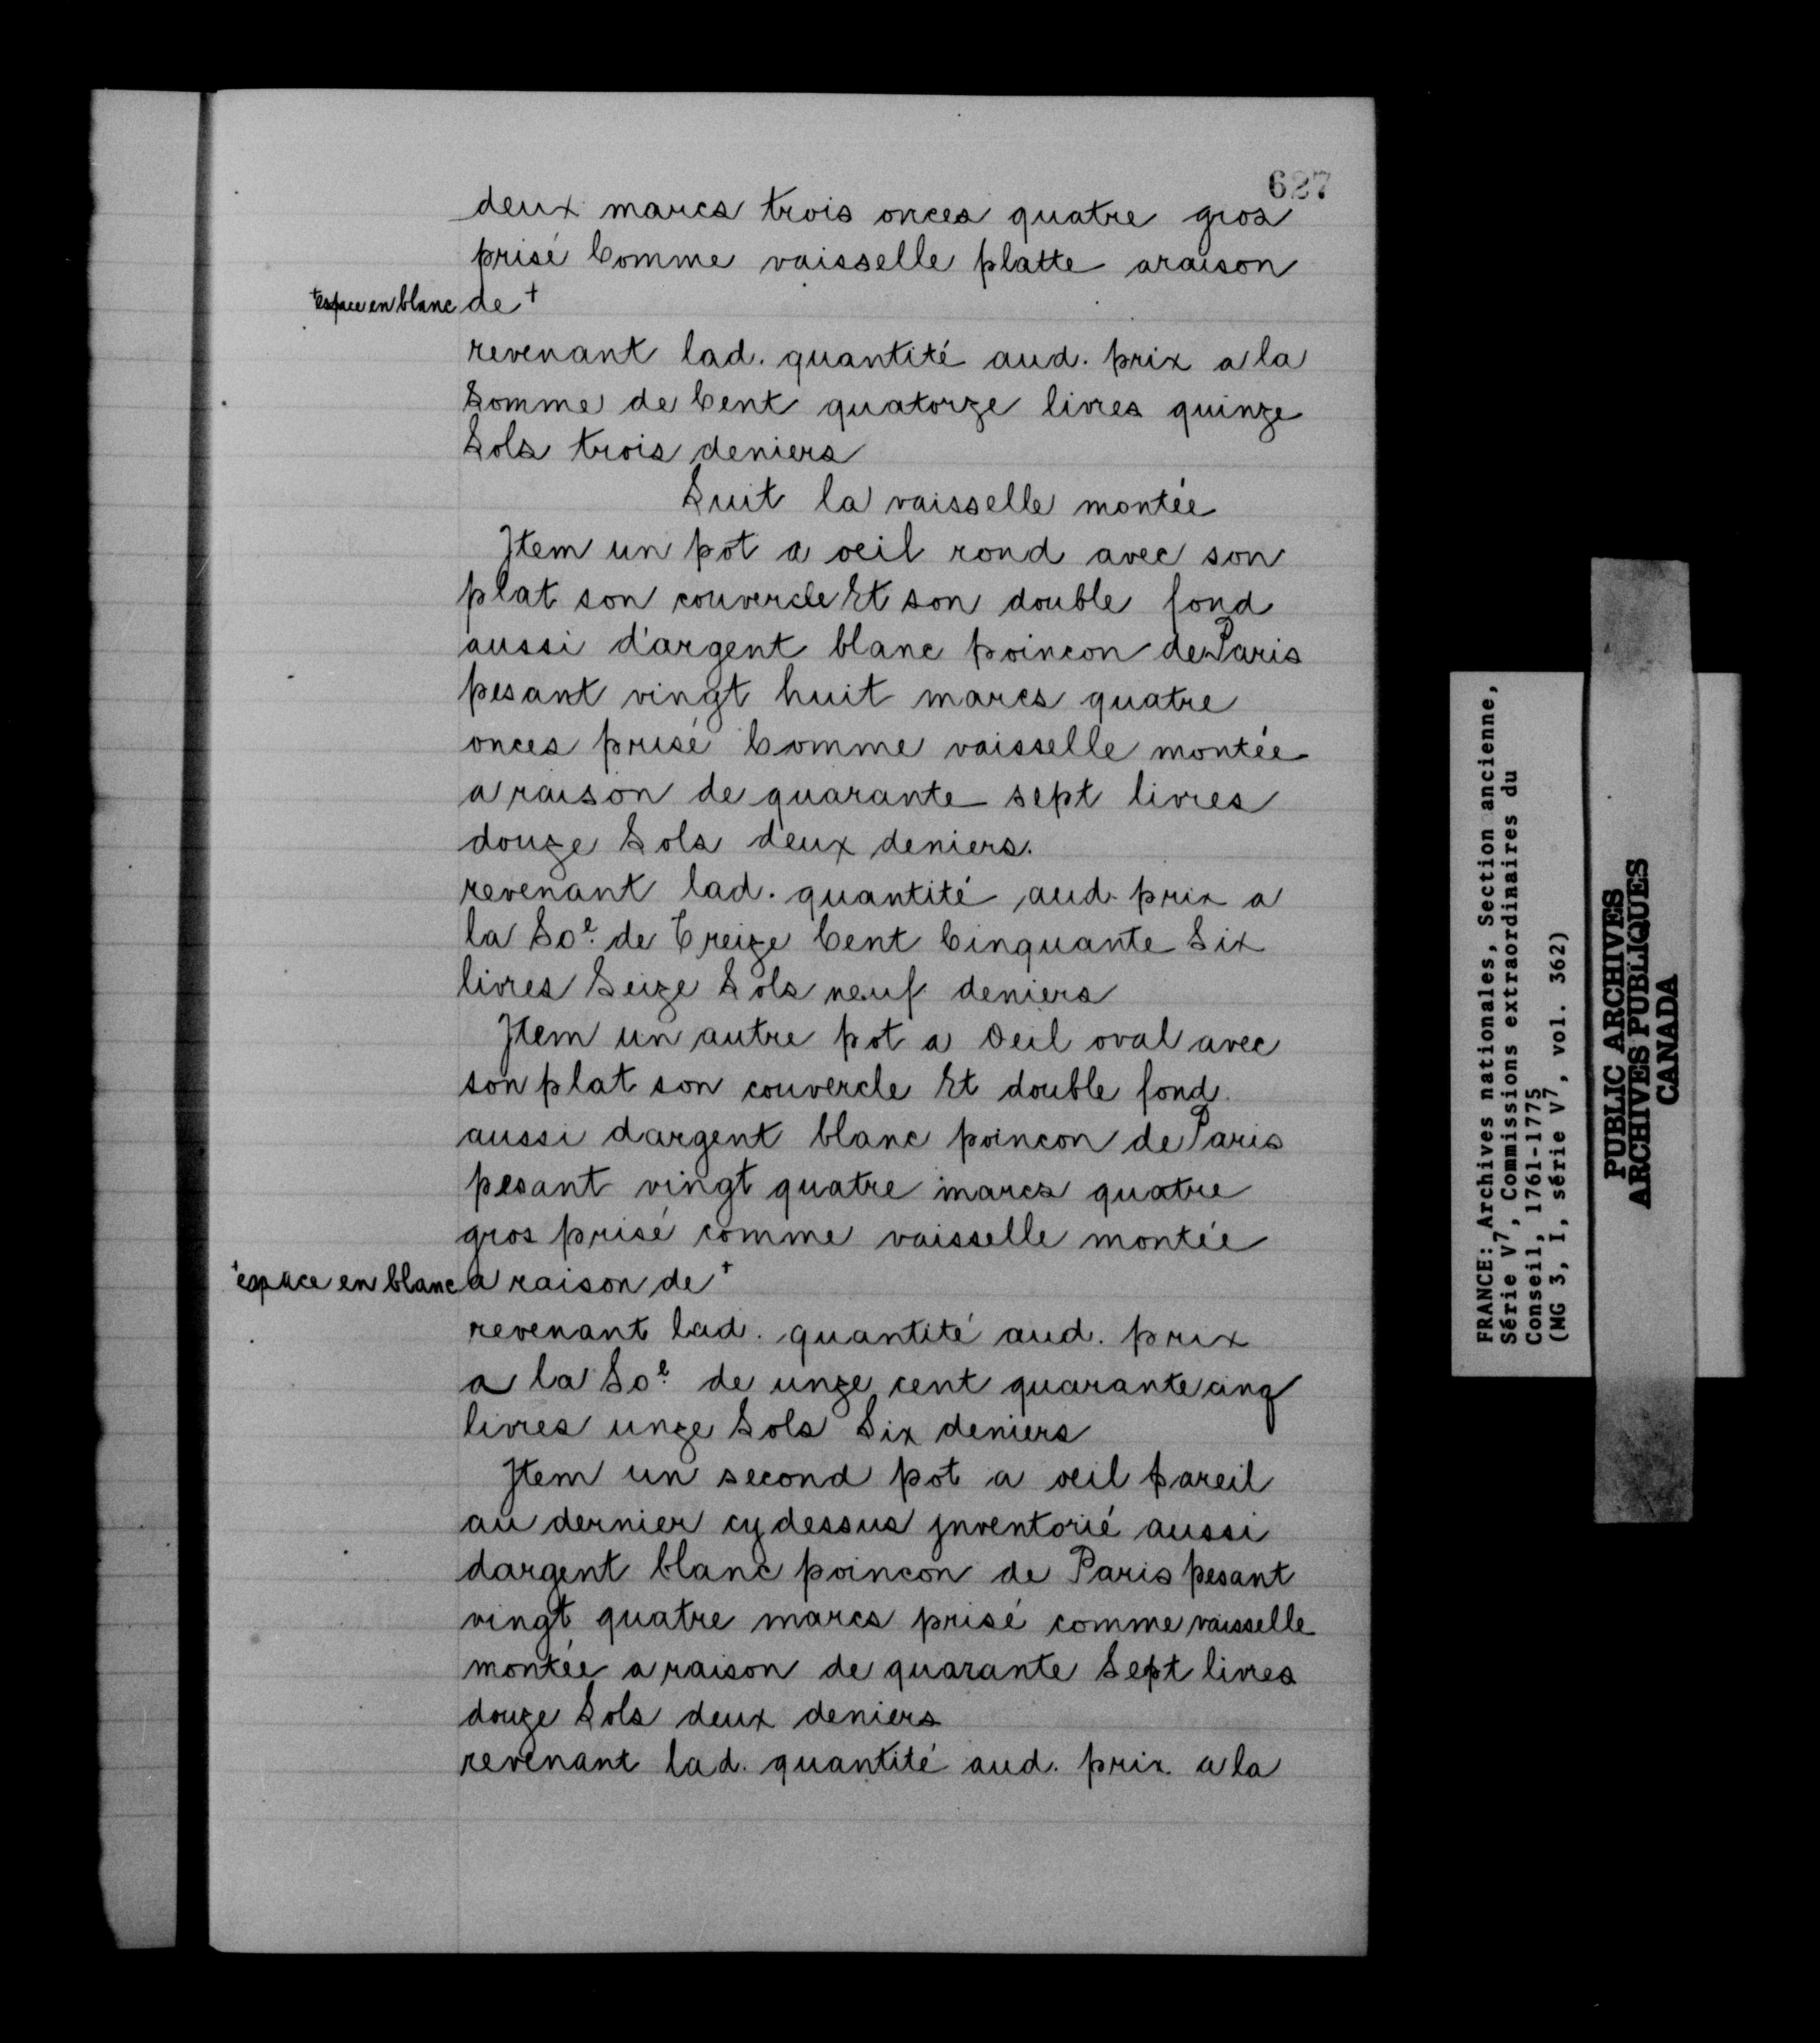 627
deux marcs trois onces quatre gros
prisé Comme vaisselle platte araison
+espace en blanc de +
revenant lad. quantité aud. prix a la
Somme de Cent quatorze livres quinze
Sols trois deniers
Suit la vaisselle montée
Jtem un pot a oeil rond avec son
plat son couvercle Et son double fond
aussi d'argent blanc poincon de Paris
pesant vingt huit marcs quatre
onces prisé Comme vaisselle montée
a raison de quarante sept livres
douze Sols deux deniers.
revenant lad. quantité aud. prix a
la Soe. de Treize Cent Cinquante Six
livres Seize Sols neuf deniers
Jtem un autre pot a Oeil oval avec
son plat son couvercle Et double fond
aussi dargent blanc poincon de Paris
pesant vingt quatre marcs quatre
gros prisé comme vaisselle montée
+espace en blanc a raison de +
revenant lad. quantité aud. prix
a la Soe. de unze cent quarante cinq
livres unze Sols Six deniers
Jtem un second pot a oeil pareil
au dernier cy dessus jnventorié aussi
dargent blanc poincon de Paris pesant
vingt quatre marcs prisé comme vaisselle
montée a raison de quarante Sept livres
douze Sols deux deniers
revenant lad. quantité aud. prix a la
FRANCE: Archives nationales, Section ancienne,
Série V7, Commissions extraordinaires du
Conseil, 1761-1775
(MG 3, I, série V7, vol. 362)
PUBLIC ARCHIVES
ARCHIVES PUBLIQUES
CANADA